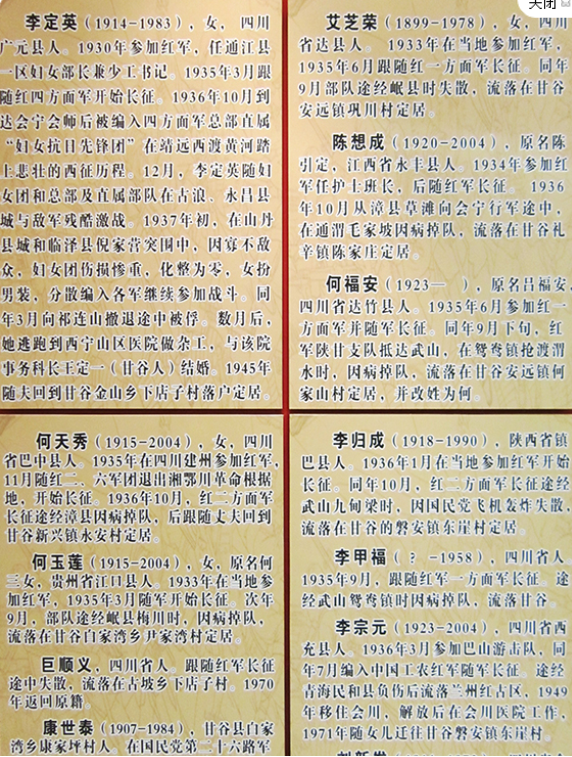 关闭
李定英(1914-1983),女,四川
广元县人。1930年参加红军,任通江县
一区妇女部长兼少工书记。1935年3月跟
随红四方面军开始长征。1936年10月到
达会宁会师后被编入四方面军总部直属
“妇女抗日先锋团”在靖远西渡黄河踏
上悲壮的西征历程。12月,李定英随妇
女团和总部及直属部队在古浪、永昌县
城与敌军残酷激战。1937年初,在山丹
县城和临泽县倪家营突围中,因寡不敌
众,妇女团伤损惨重,化整为零,女扮
男装,分散编入各军继续参加战斗。同
年3月向祁连山撤退途中被俘。数月后,
她逃跑到西宁山区医院做杂工,与该院
事务科长王定一(甘谷人)结婚。1945年
随夫回到甘谷金山乡下店子村落户定居。
艾芝荣(1899-1978),女,四川
省达县人。1933年在当地参加红军,
1935年6月跟随红一方面军长征。同年
9月部队途经岷县时失散,流落在甘谷
安远镇巩川村定居。
陈想成(1920-2004),原名陈
引定,江西省永丰县人。1934年参加红
军任护士班长,后随红军长征。1936
年10月从漳县草滩向会宁行军途中,
在通渭毛家坡因病掉队,流落在甘谷礼
辛镇陈家庄定居。
何福安(1923— ),原名吕福安,
四川省达竹县人。1935年6月参加红一
方面军并随军长征。同年9月下旬,红
军陕甘支队抵达武山,在鸳鸯镇抢渡渭
水时,因病掉队,流落在甘谷安远镇何
家山村定居,并改姓为何。
何天秀(1915-2004),女,四川
省巴中县人。1935年在四川建州参加红军,
11月随红二、六军团退出湘鄂川革命根据
地,开始长征。1936年10月,红二方面军
长征途经漳县因病掉队,后跟随丈夫回到
甘谷新兴镇永安村定居。
何玉莲(1915-2004),女,原名何
三女,贵州省江口县人。1933年在当地参
加红军,1935年3月随军开始长征。次年
9月,部队途经岷县梅川时,因病掉队,
流落在甘谷白家湾乡尹家湾村定居。
巨顺义,四川省人。跟随红军长征
途中失散,流落在古坡乡下店子村。1970
年返回原籍。
康世泰(1907-1984),甘谷县白家
湾乡康家坪村人。在国民党第二十六路军
李归成(1918-1990),陕西省镇
巴县人。1936年1月在当地参加红军开始
长征。同年10月,红二方面军长征途经
武山九甸梁时,因国民党飞机轰炸失散,
流落在甘谷的磐安镇东崖村定居。
李甲福( ? -1958),四川省人。
1935年9月,跟随红军一方面军长征。途
经武山鸳鸯镇时因病掉队,流落甘谷。
李宗元(1923-2004),四川省西
充县人。1936年3月参加巴山游击队,同
年7月编入中国工农红军随军长征。途经
青海民和县负伤后流落兰州红古区,1949
年移住会川,解放后在会川医院工作,
1971年随女儿迁往甘谷磐安镇东崖村。